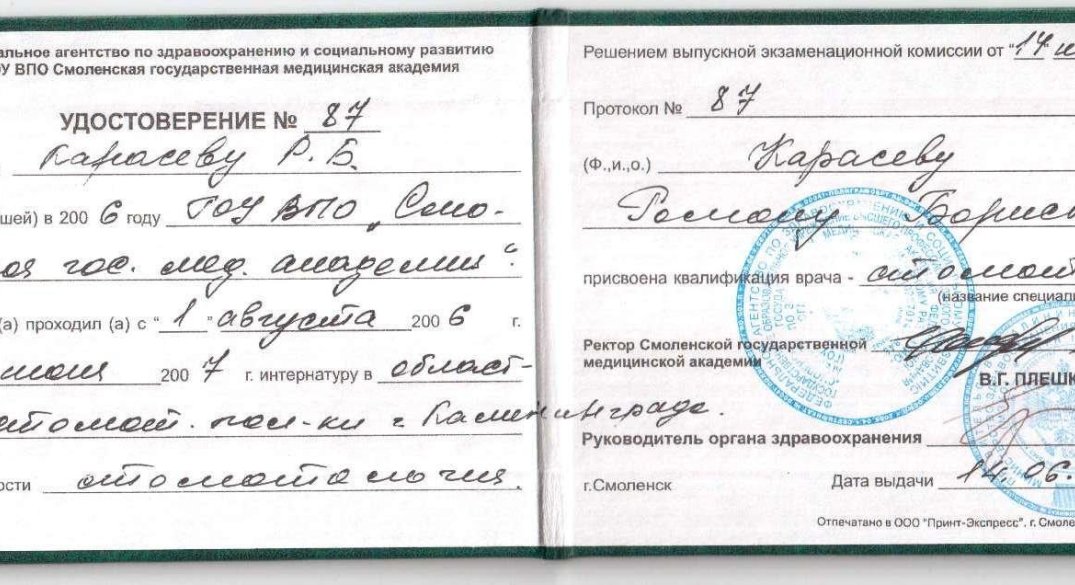 альное агентство по здравоохранению и социальному развитию
У ВПО Смоленская государственная медицинская академия
УДОСТОВЕРЕНИЕ № 87
Карасеву Р. Б.
шей) в 200 6 году ГОУ ВПО „Смо-
ая гос. мед. академия“.
(а) проходил (а) с "1" августа 200 6 г.
200 7 г. интернатуру в област-
стомат. пол-ки г. Калининграда.
ости стоматология.
Решением выпускной экзаменационной комиссии от "14"
Протокол № 87
(Ф.,и.,о.) Карасеву
Роману Борис
присвоена квалификация врача - стомат
(название специаль
Ректор Смоленской государственной
медицинской академии
В.Г. ПЛЕШК
Руководитель органа здравоохранения
г.Смоленск Дата выдачи 14.06.
Отпечатано в ООО "Принт-Экспресс". г. Смоле